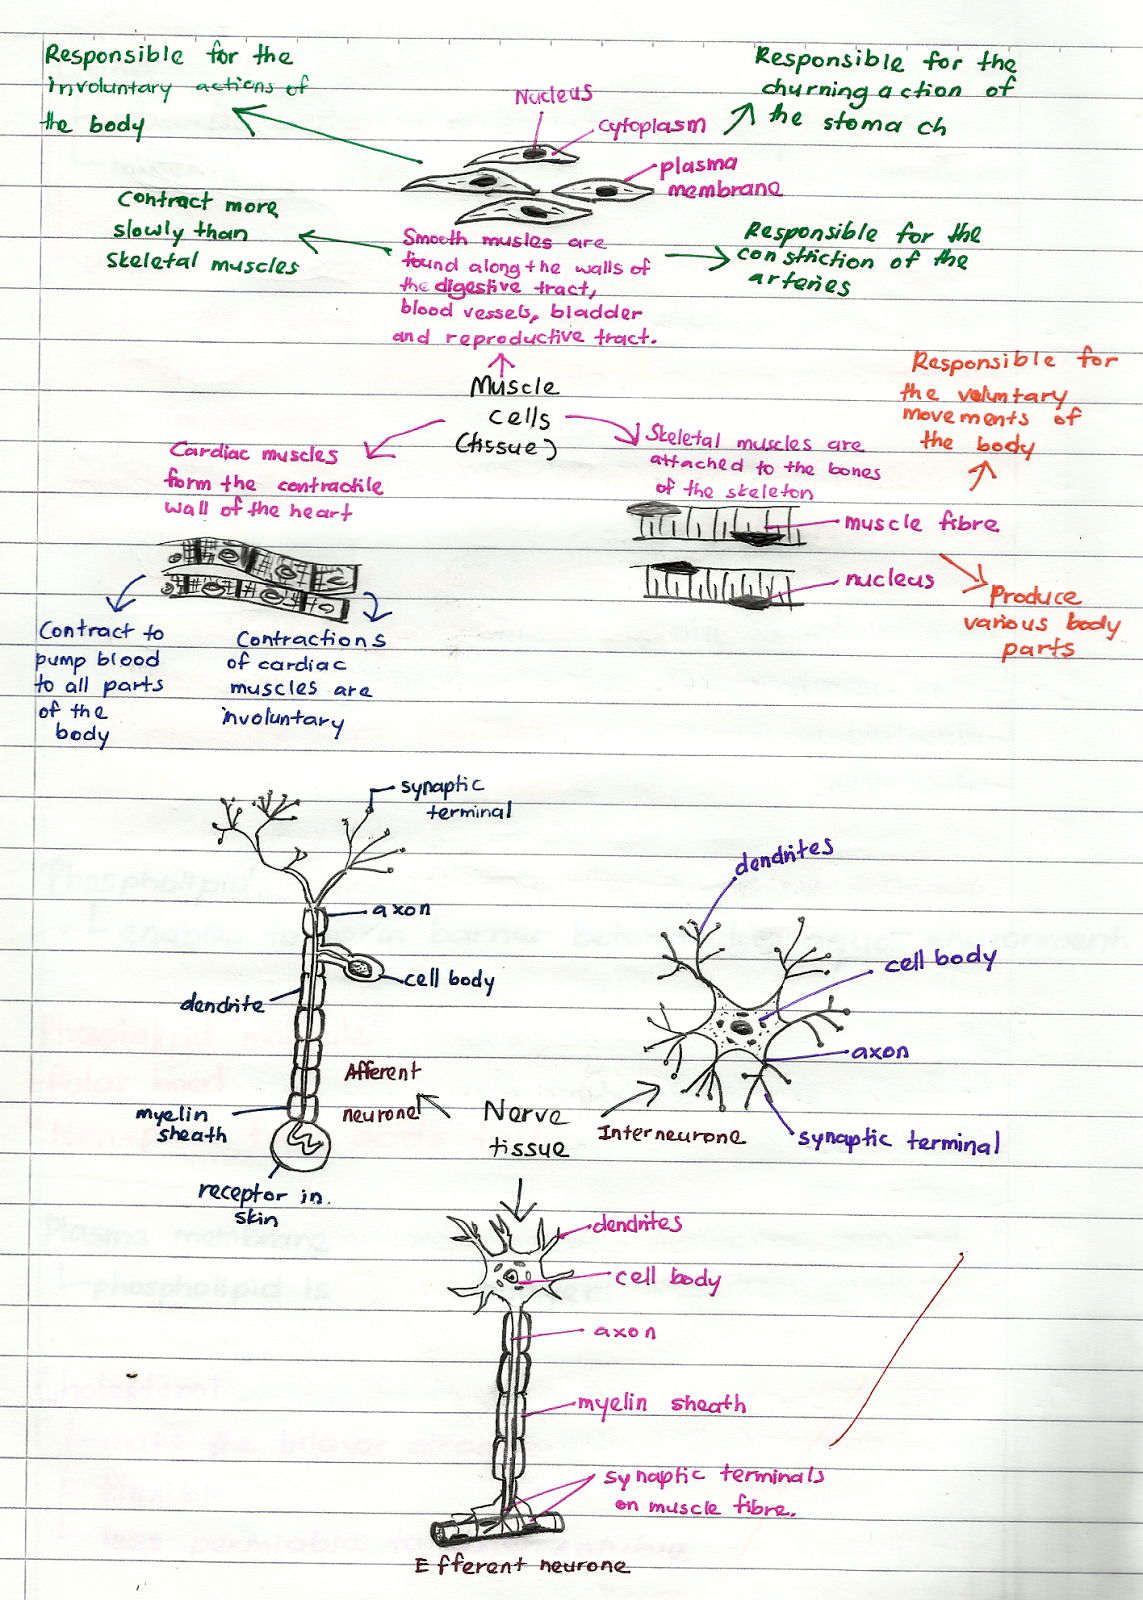 Responsible for the
involuntary actions of
the body
Nucleus
cytoplasm
plasma
membrane
Responsible for the
churning action of
the stoma ch
Contract more
slowly than
skeletal muscles
Smooth musles are
found along the walls of
the digestive tract,
blood vessels, bladder
and reproductive tract.
Responsible for the
constriction of the
arteries
Muscle
cells
(tissue)
Cardiac muscles
form the contractile
wall of the heart
Skeletal muscles are
attached to the bones
of the skeleton
Responsible for
the voluntary
movements of
the body
muscle fibre
nucleus
Produce
various body
parts
Contract to
pump blood
to all parts
of the
body
Contractions
of cardiac
muscles are
involuntary
synaptic
terminal
axon
cell body
dendrite
myelin
sheath
receptor in.
skin
Afferent
neurone
Nerve
tissue
Interneurone
dendrites
cell body
axon
synaptic terminal
dendrites
cell body
axon
myelin sheath
synaptic terminals
on muscle fibre.
Efferent neurone